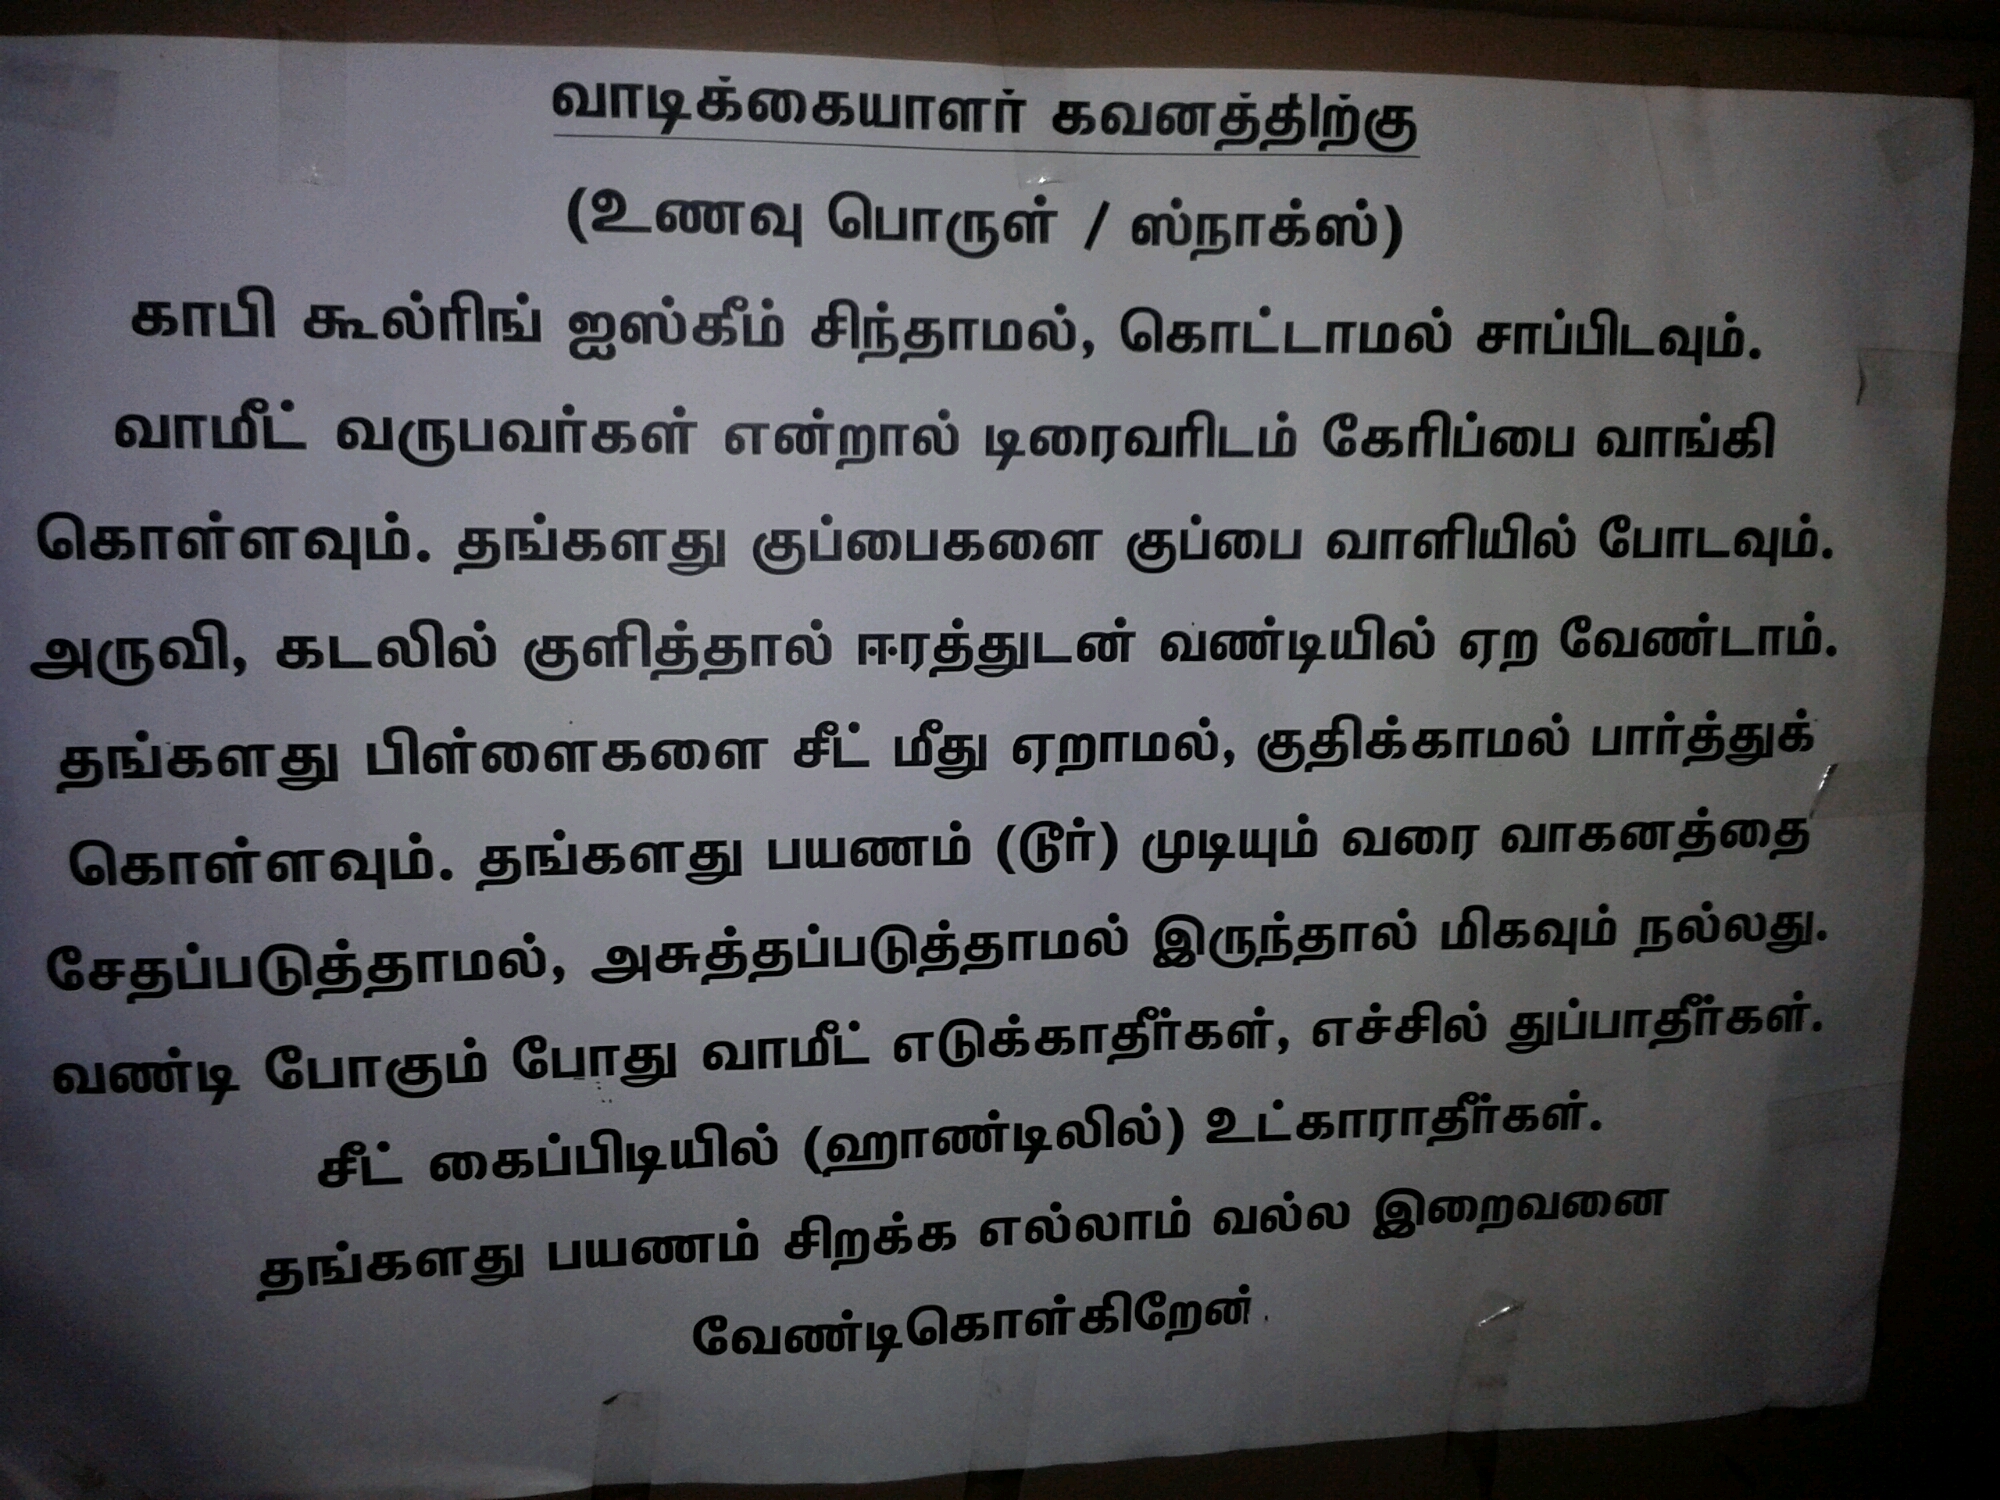 வாடிக்கையாளர் கவனத்திற்கு
(உணவு பொருள் / ஸ்நாக்ஸ்)
காபி கூல்ரிங் ஐஸ்கீம் சிந்தாமல், கொட்டாமல் சாப்பிடவும்.
வாமீட் வருபவர்கள் என்றால் டிரைவரிடம் கேரிப்பை வாங்கி
கொள்ளவும். தங்களது குப்பைகளை குப்பை வாளியில் போடவும்.
அருவி, கடலில் குளித்தால் ஈரத்துடன் வண்டியில் ஏற வேண்டாம்.
தங்களது பிள்ளைகளை சீட் மீது ஏறாமல், குதிக்காமல் பார்த்துக்
கொள்ளவும். தங்களது பயணம் (டூர்) முடியும் வரை வாகனத்தை
சேதப்படுத்தாமல், அசுத்தப்படுத்தாமல் இருந்தால் மிகவும் நல்லது.
வண்டி போகும் போது வாமீட் எடுக்காதீர்கள், எச்சில் துப்பாதீர்கள்.
சீட் கைப்பிடியில் (ஹாண்டிலில்) உட்காராதீர்கள்.
தங்களது பயணம் சிறக்க எல்லாம் வல்ல இறைவனை
வேண்டிகொள்கிறேன்.